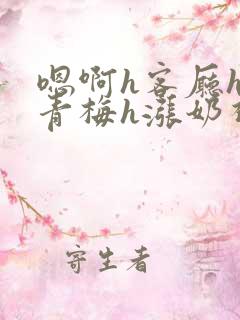 嗯啊h客厅h
青梅h涨奶
寄生者